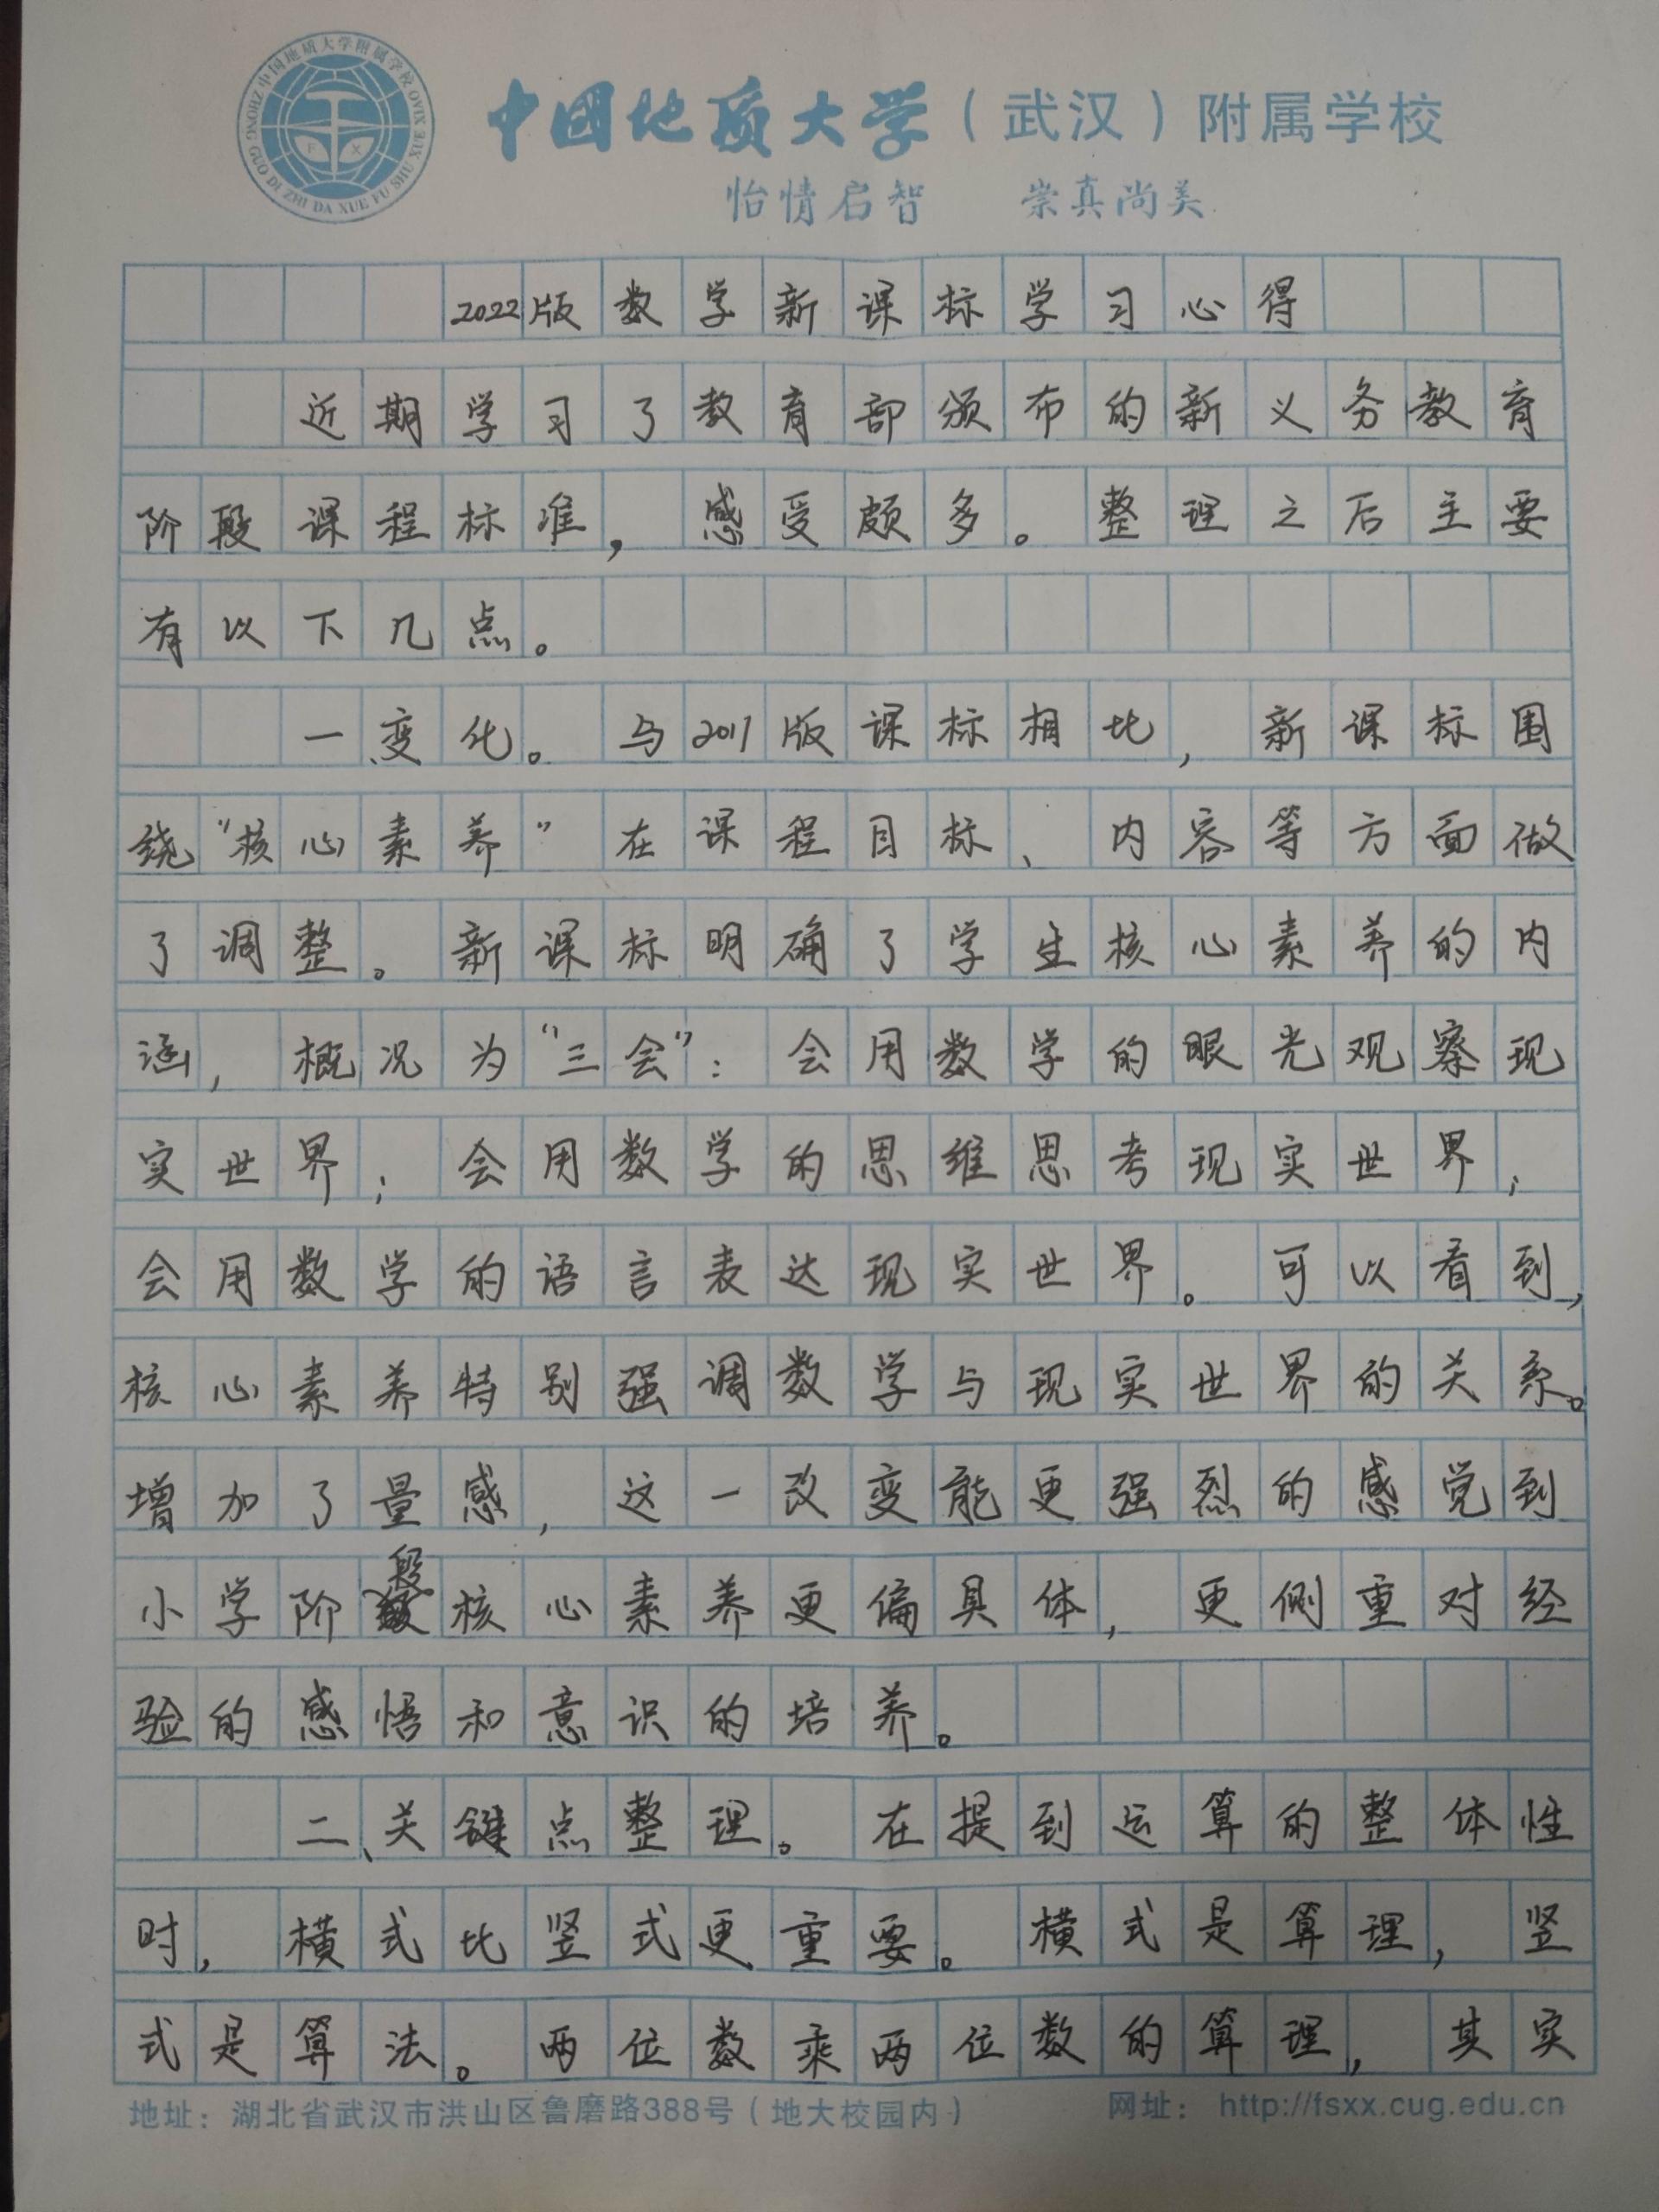 中国地质大学附属学校
ZHONG GUO DI ZHI DA XUE FU SHU XUE XIAO
F X
中国地质大学（武汉）附属学校
怡情启智 崇真尚美
2022版数学新课标学习心得
近期学习了教育部颁布的新义务教育
阶段课程标准，感受颇多。整理之后主要
有以下几点。
一、变化。与2011版课标相比，新课标围
绕“核心素养”在课程目标、内容等方面做
了调整。新课标明确了学生核心素养的内
涵，概况为“三会”：会用数学的眼光观察现
实世界；会用数学的思维思考现实世界；
会用数学的语言表达现实世界。可以看到，
核心素养特别强调数学与现实世界的关系。
增加了量感，这一改变能更强烈的感觉到
小学阶段核心素养更偏具体，更侧重对经
验的感悟和意识的培养。
二、关键点整理。在提到运算的整体性
时，横式比竖式更重要。横式是算理，竖
式是算法。两位数乘两位数的算理，其实
地址：湖北省武汉市洪山区鲁磨路388号（地大校园内） 网址：http://fsxx.cug.edu.cn